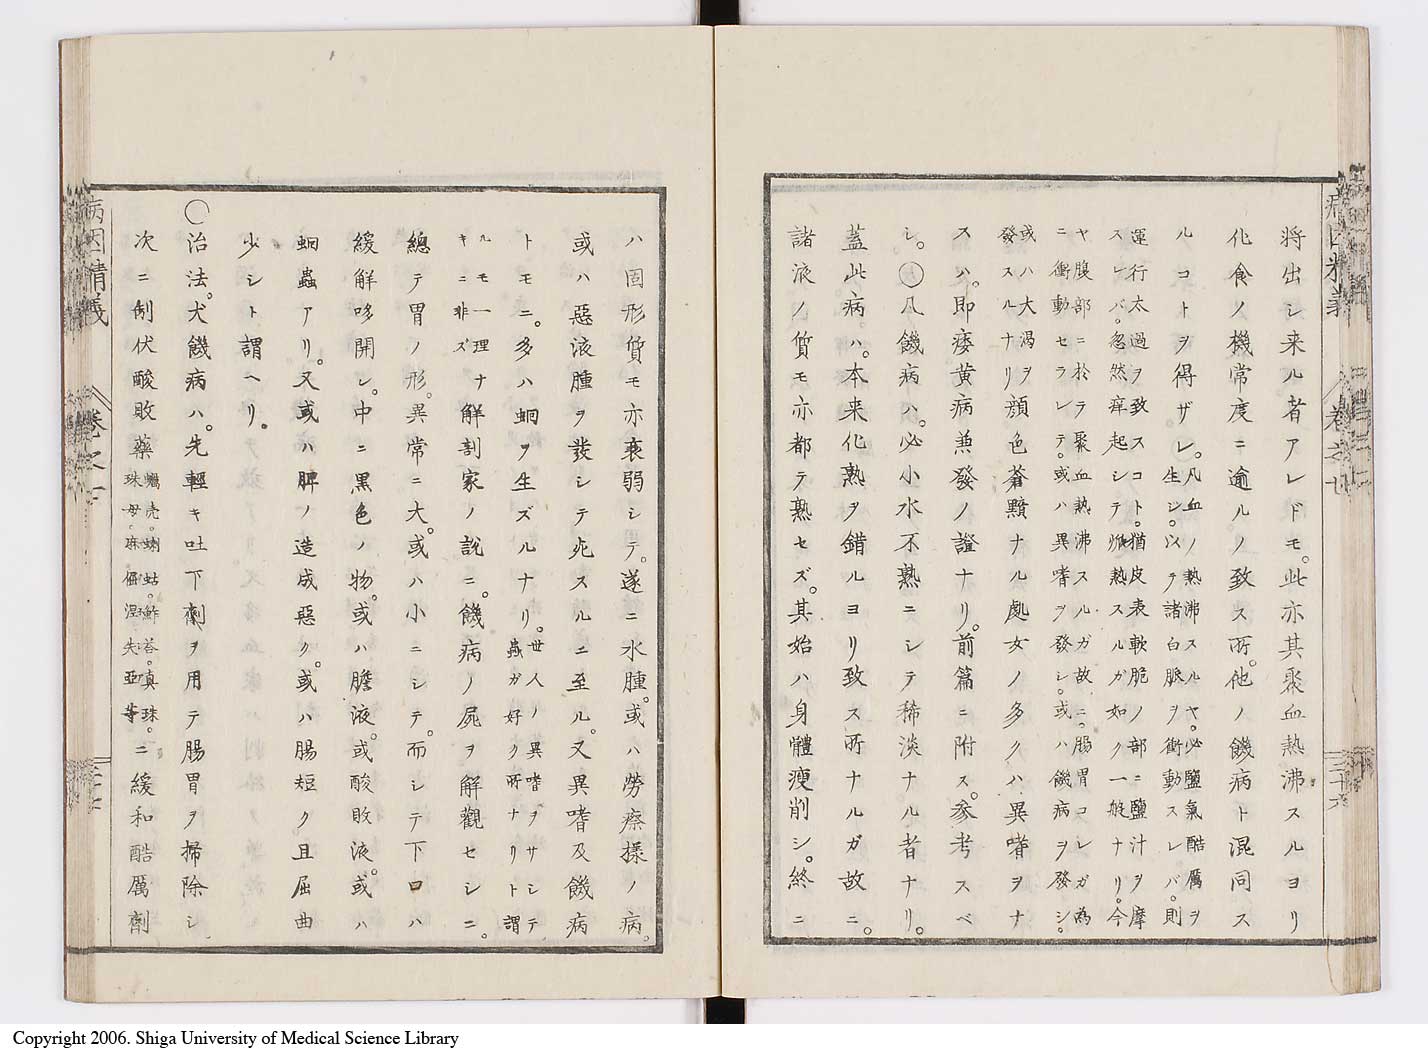 將出シ来ル者アレドモ。此亦其聚血熱沸スルヨリ
化食ノ機常度ニ逾ルノ致ス所。他ノ饑病ト混同ス
ルコトヲ得ザレ。
凡血ノ熱沸スルヤ。必鹽氣酷厲ヲ
生シ。以テ諸白脈ヲ衝動スレバ。則
運行太過ヲ致スコト。猶皮表軟脆ノ部ニ鹽汁ヲ摩
スレバ。忽然痒起シテ焮熱スルガ如ク一般ナリ。今
ヤ腹部ニ於テ聚血熱沸スルガ故ニ。腸胃コレガ為
ニ衝動セラレテ。或ハ異嗜ヲ發シ。或ハ饑病ヲ發シ。
或ハ大渴ヲ
發スルナリ
顔色蒼黯ナル處女ノ多クハ異嗜ヲナ
スハ。即痿黄病兼發ノ證ナリ。前篇ニ附ス。参考スベ
シ。◯凡饑病ハ。必小水不熟ニシテ稀淡ナル者ナリ。
蓋此病ハ。本来化熟ヲ錯ルヨリ致ス所ナルガ故ニ。
諸液ノ質モ亦都テ熟セズ。其始ハ身體瘦削シ。終ニ
病因精義
卷之
ハ固形質モ亦衰弱シテ。遂ニ水腫。或ハ勞瘵樣ノ病。
或ハ惡液腫ヲ發シテ死スルニ至ル。又異嗜及饑病
トモニ。多ハ蛔ヲ生ズルナリ。
世人ノ異嗜ヲサシテ
蟲ガ好ク所ナリト謂
ルモ一理ナ
キニ非ズ
解剖家ノ說ニ。饑病ノ屍ヲ解觀セシニ。
總テ胃ノ形。異常ニ大。或ハ小ニシテ。而シテ下口ハ
緩解哆開シ。中ニ黒色ノ物。或ハ膽液。或酸敗液。或ハ
蛔蟲アリ。又或ハ脾ノ造成惡ク。或ハ腸短ク且屈曲
少シト謂ヘリ。
◯治法。犬饑病ハ。先輕キ吐下劑ヲ用テ腸胃ヲ掃除シ
次ニ制伏酸敗藥
蠣壳。蜊蛄。鮓荅。真珠。
珠母。麻倔涅失亞等。
ニ緩和酷厲劑
病因精義
卷之
Copyright 2006. Shiga University of Medical Science Library